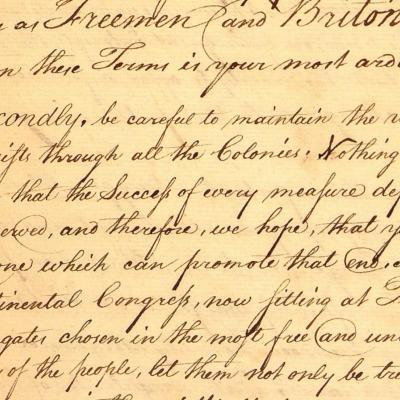 as Freemen and Briton
these Terms is your most ard
condly, be careful to maintain the
ists through all the Colonies: Nothing
that the Succeſs of every meaſure de
erved, and therefore, we hope, that y
one which can promote that end,
tinental Congreſs, now ſitting at
gates chosen in the moſt free and un
of the people, let them not only be tre